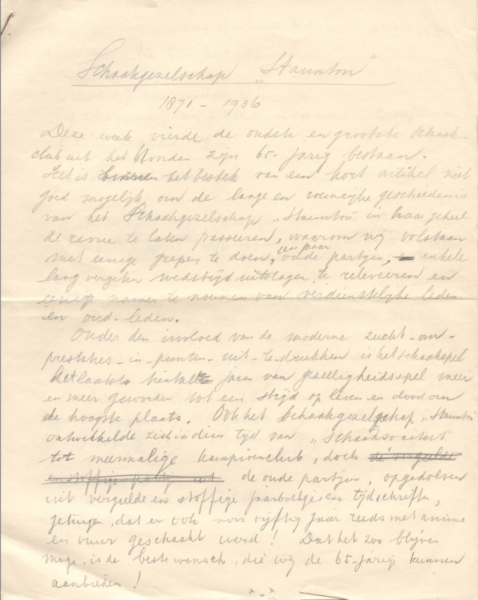 Schaakgezelschap „Staunton"
1871 - 1936
Deze week vierde de oudste en grootste schaak-
club uit het Noorden zijn 65-jarig bestaan.
Het is binnen het bestek van een kort artikel niet
goed mogelijk om de lange en roemrijke geschiedenis
van het Schaakgezelschap „Staunton" in haar geheel
de revue te laten passeeren, waarom wij volstaan
met eenige grepen te doen, een paar oude partijen, enkele
lang vergeten wedstrijduitslagen te releveeren en
eenige namen te noemen van verdienstelijke leden
en oud-leden.
Onder den invloed van de moderne zucht-om-
prestaties-in-punten-uit-te-drukken is het schaakspel
de laatste tientallen jaren van gezelligheidsspel meer
en meer geworden tot een strijd op leven en dood om
de hoogste plaats. Ook het Schaakgezelschap „Staunton"
ontwikkelde zich in dien tijd van „Schaaksociëteit"
tot meermalige kampioenclub, doch de vergeelde
en stoffige de oude partijen, opgedolven
uit vergeelde en stoffige jaarboekjes en tijdschriften,
getuigen, dat er ook voor vijftig jaar reeds met animo
en vuur geschaakt werd! Dat het zoo blijven
moge, is de beste wensch, die wij de 65-jarige kunnen
aanbieden!